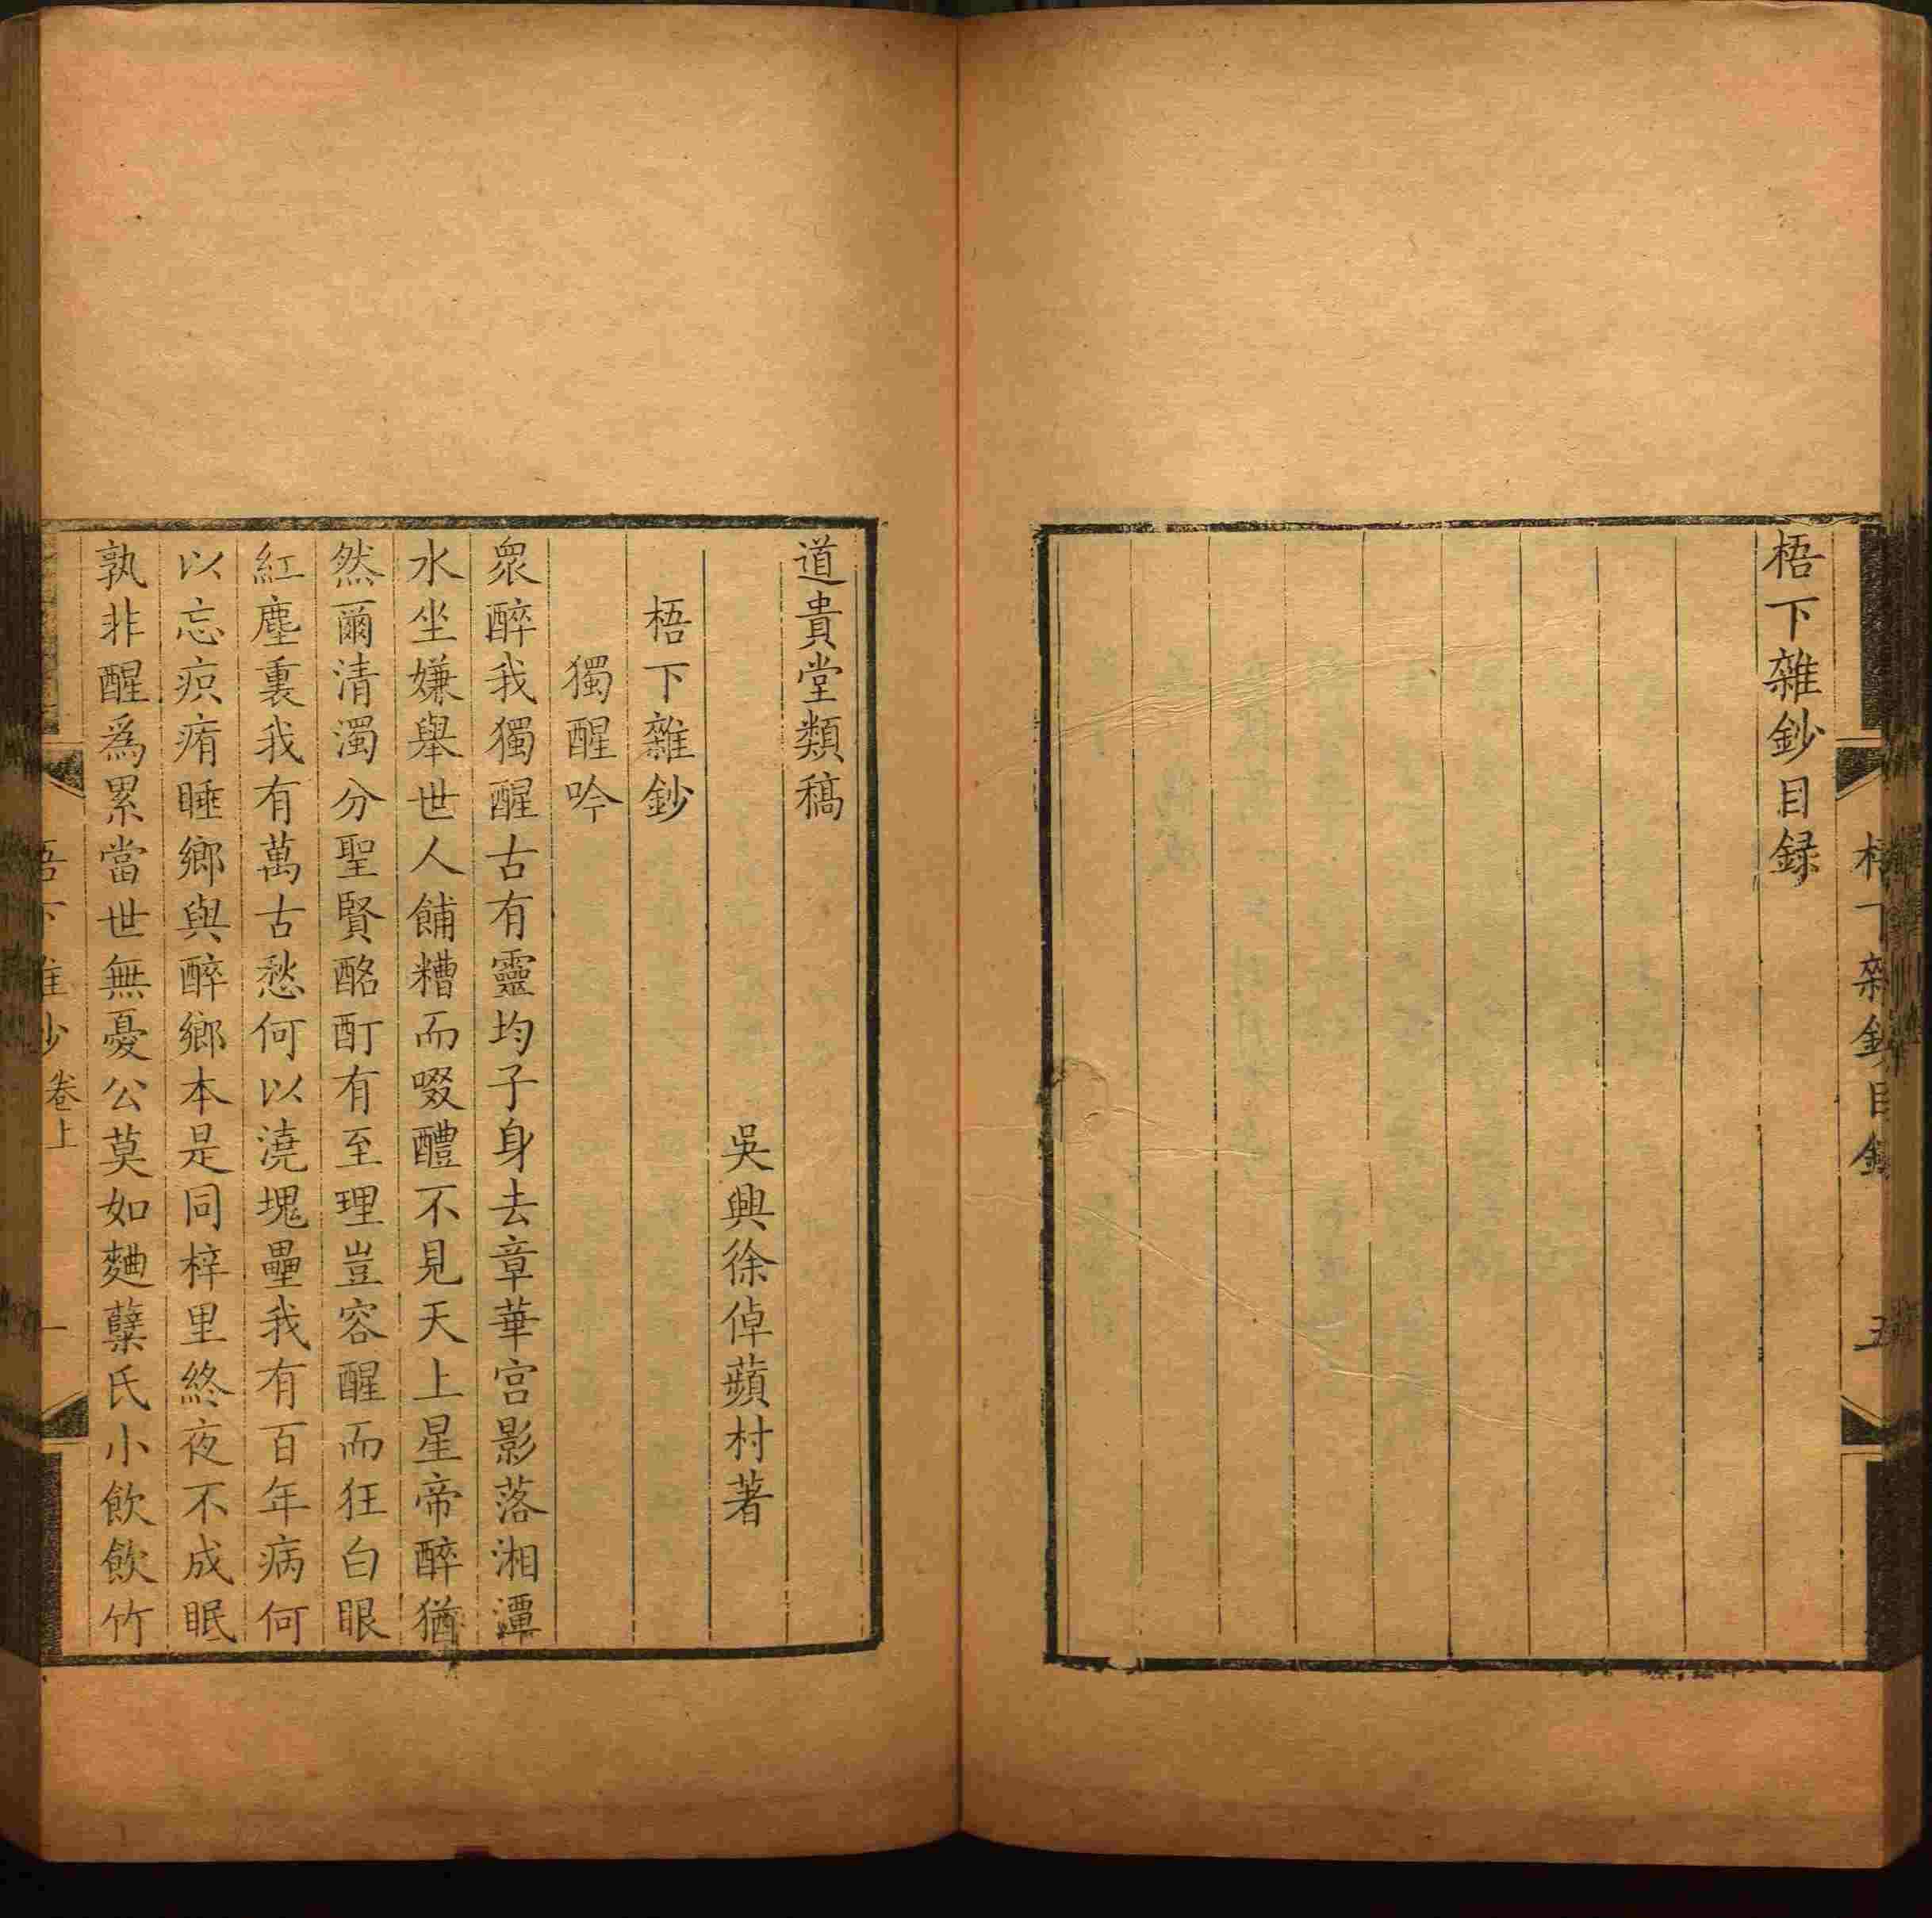 梧下雜鈔目録
梧下雜鈔目録 五
道貴堂類稿
吳興徐倬蘋村著
梧下雜鈔
獨醒吟
眾醉我獨醒古有靈均子身去章華宮影落湘潭
水坐嫌舉世人餔糟而啜醴不見天上星帝醉猶
然爾清濁分聖賢酩酊有至理豈容醒而狂白眼
紅塵裏我有萬古愁何以澆塊壘我有百年病何
以忘痕痏睡鄉與醉鄉本是同梓里終夜不成眠
孰非醒爲累當世無憂公莫如麯糵氏小飲飲竹
梧下雜鈔 卷上 一